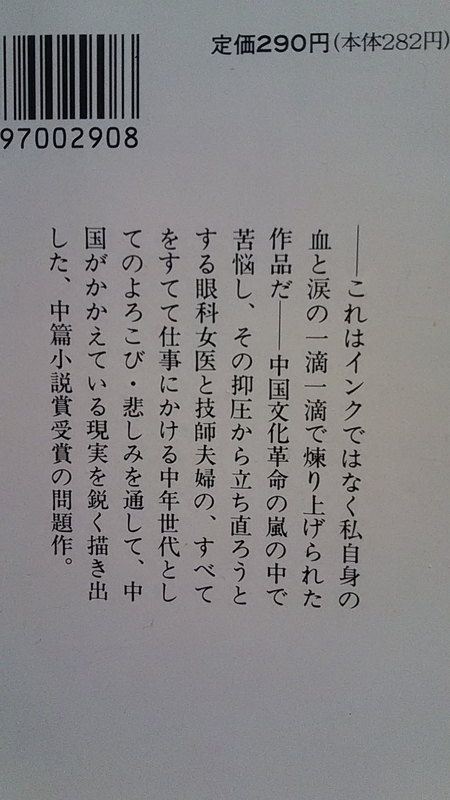 定価290円(本体282円)
97002908
――これはインクではなく私自身の
血と涙の一滴一滴で煉り上げられた
作品だ――中国文化革命の嵐の中で
苦悩し、その抑圧から立ち直ろうと
する眼科女医と技師夫婦の、すべて
をすてて仕事にかける中年世代とし
てのよろこび・悲しみを通して、中
国がかかえている現実を鋭く描き出
した、中篇小説賞受賞の問題作。